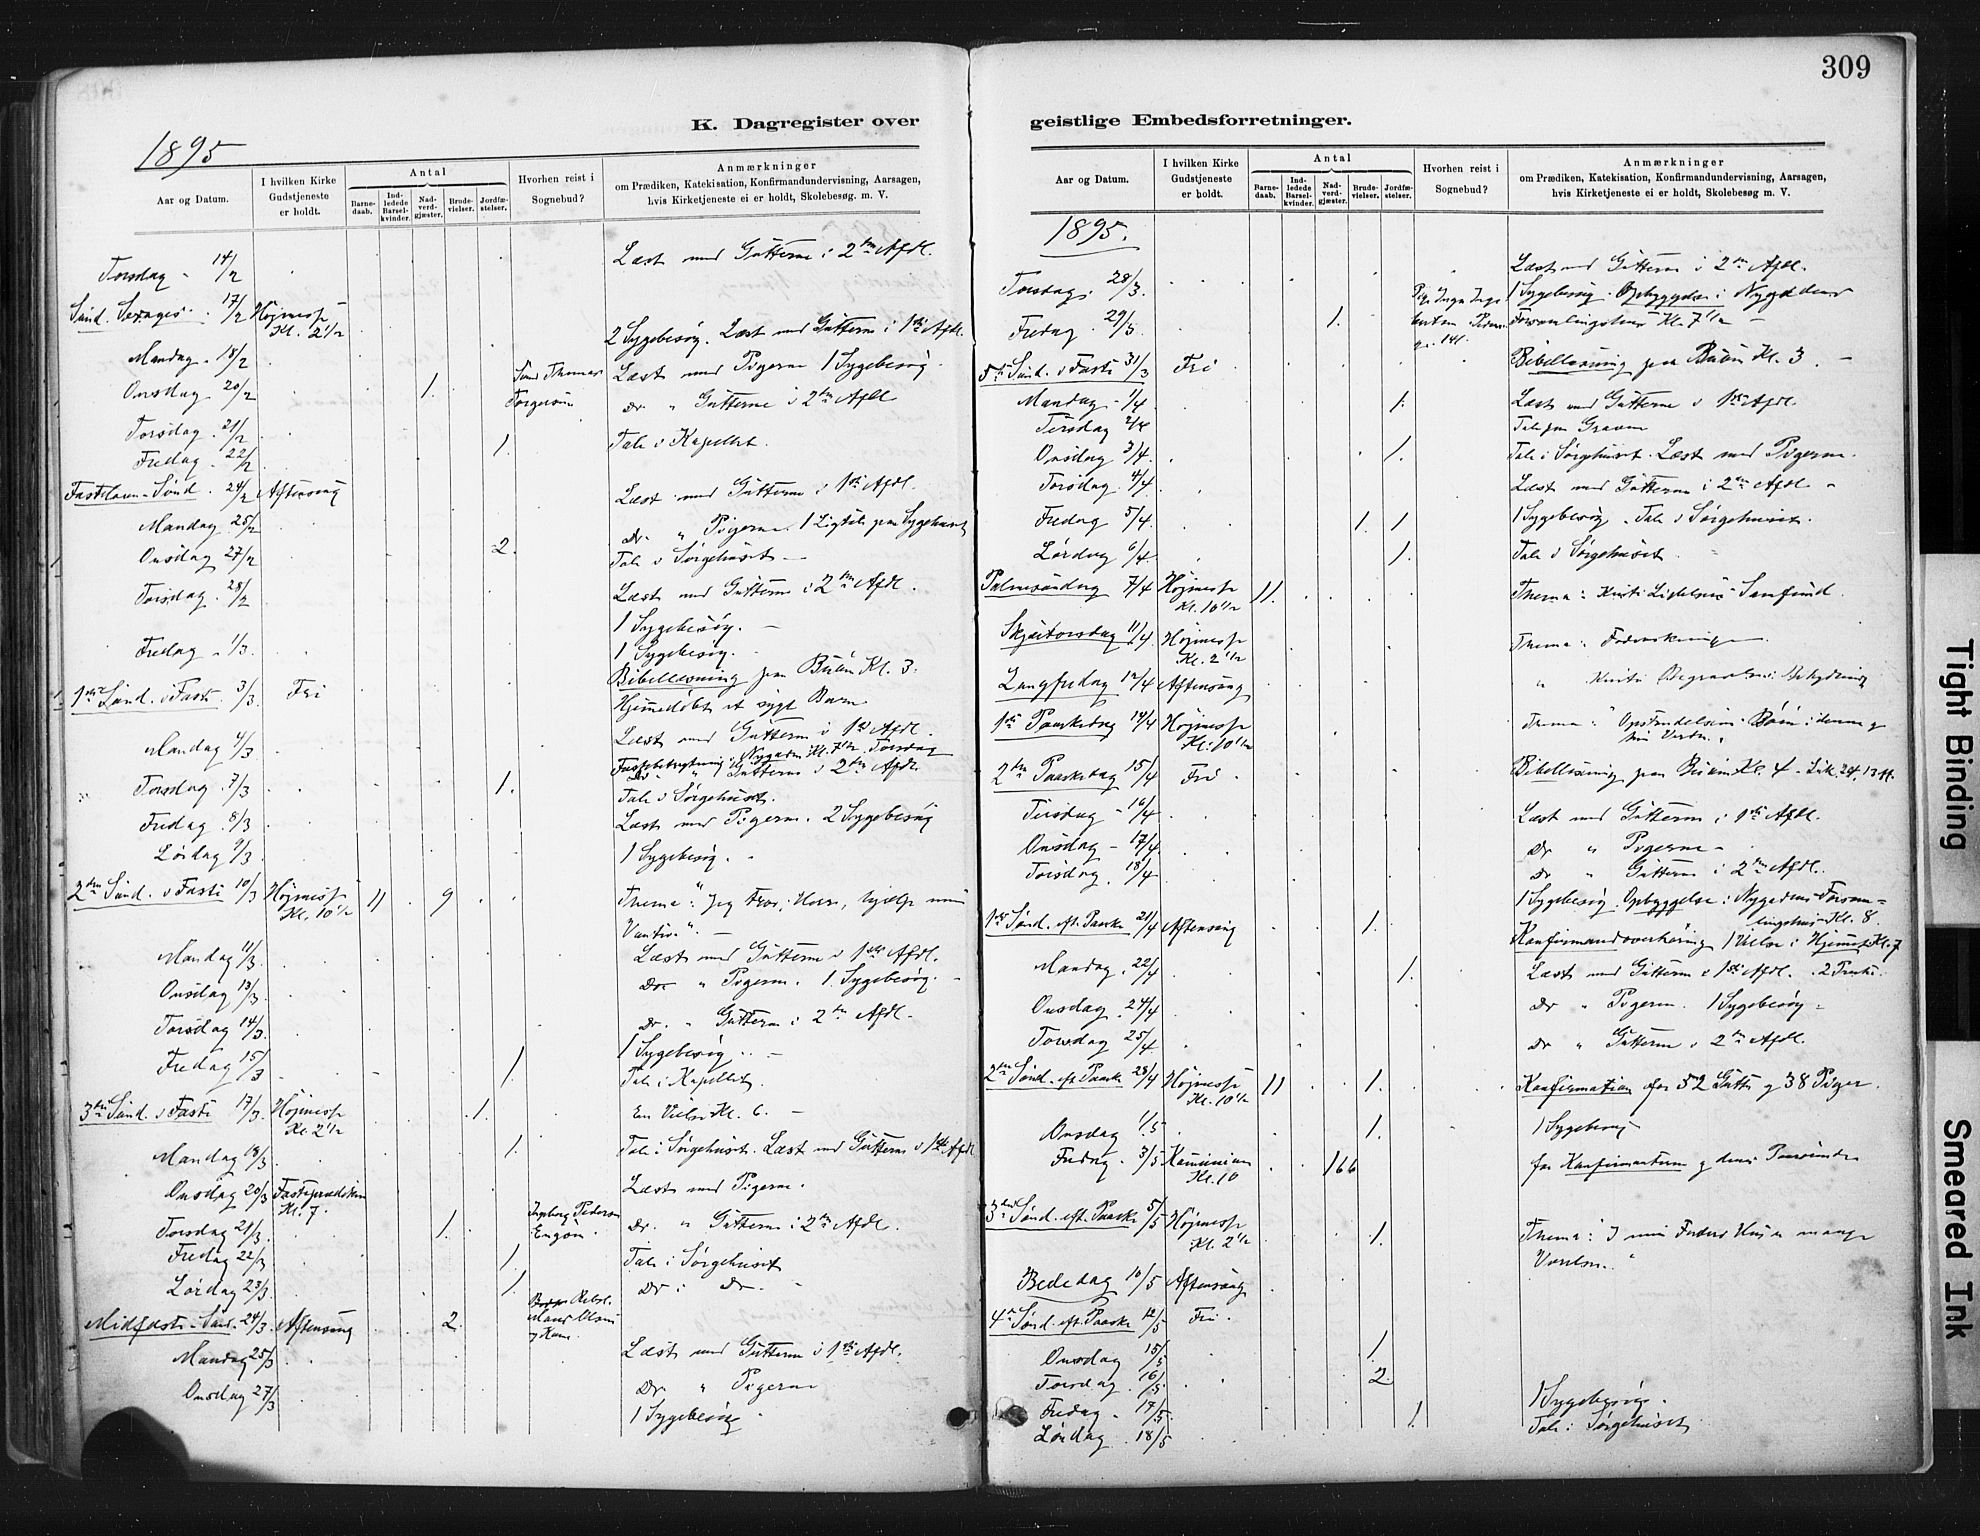 309
K. Dagregister over
geistlige Embedsforretninger.
1895
Aar og Datum.
I hvilken Kirke Gudstjeneste er holdt.
Antal
Barne-daab.
Ind-ledede Barsel-kvinder.
Nad-verd-gjæster.
Brude-vielser.
Jordfæ-stelser.
Hvorhen reist i Sognebud?
Anmærkninger
om Prædiken, Katekisation, Konfirmandundervisning, Aarsagen,
hvis Kirketjeneste ei er holdt, Skolebesøg m. V.
Torsdag 14/2 Læst med Gutterne i 2den Afdl.
Sønd. Sexages. 17/2 Højmesse Kl. 2 1/2
2 Sygebesøg. Læst med Gutterne i 1ste Afdl.
Mandag 18/2 Læst med Pigerne 1 Sygebesøg.
Onsdag 20/2 1. Thomas Torgersen Do. " Gutterne i 2den Afdl
Torsdag 21/2
Fredag 22/2 1. Tale i Kapellet.
Fastelavn-Sønd. 24/2 Aftensang
Læst med Gutterne i 1ste Afdl.
Mandag 25/2 Do. " Pigerne. 1 Ligtale paa Sygehuset
Onsdag 27/2 2. Tale i Sørgehuset
Torsdag 28/2 Læst med Gutterne i 2den Afdl.
1 Sygebesøg.
Fredag 1/3 1 Sygebesøg.
Bibellæsning paa Kl. 3.
1ste Sønd. i Faste 3/3 Fri
Hjemmedøbt et sygt Barn
Mandag 4/3 Læst med Gutterne i 1ste Afdl.
Nygaden Kl. 7 1/2 Torsdag
Torsdag 7/3 Do. " Gutterne i 2den Afdl.
1. Tale i Sørgehuset.
Fredag 8/3 Læst med Pigerne. 2 Sygebesøg
Lørdag 9/3 1 Sygebesøg.
2den Sønd. i Faste 10/3 Højmesse Kl. 10 1/2 11 9 Thema: "Jeg tror, Herre, hjælp min
Vantro."
Mandag 11/3 Læst med Gutterne i 1ste Afdl.
Onsdag 13/3 Do " Pigerne. 1 Sygebesøg.
Torsdag 14/3 Do. " Gutterne i 2den Afdl.
Fredag 15/3 1 Sygebesøg
1. Tale i Kapellet.
3die Sønd. i Faste 17/3 Højmesse Kl. 2 1/2 1. En Vielse Kl. 6.
Mandag 18/3 1. Tale i Sørgehuset. Læst med Gutterne i 1ste Afdl
Onsdag 20/3 Fasteprædiken Kl. 7. Læst med Pigerne.
Torsdag 21/3 1. Ingeborg Pedersen Do. " Gutterne i 2den Afdl.
Fredag 22/3 1. Tale i Sørgehuset
Lørdag 23/3 1. Do i Do.
Midfaste-Sønd. 24/3 Aftensang 2.
Mandag 25/3 Læst med Gutterne i 1ste Afdl.
Onsdag 27/3 Do " Pigerne
1 Sygebesøg
Aar og Datum.
I hvilken Kirke Gudstjeneste er holdt.
Antal
Barne-daab.
Ind-ledede Barsel-kvinder.
Nad-verd-gjæster.
Brude-vielser.
Jordfæ-stelser.
Hvorhen reist i Sognebud?
Anmærkninger
om Prædiken, Katekisation, Konfirmandundervisning, Aarsagen,
hvis Kirketjeneste ei er holdt, Skolebesøg m. V.
1895.
Torsdag 28/3 Læst med Gutterne i 2den Afdl.
1 Sygebesøg. Opbyggelse i Nygadens
Fredag 29/3 1. Forsamlingshus Kl. 7 1/2
5te Sønd. i Faste 31/3 Fri Bibellæsning paa Kl. 3
Mandag 1/4 1. Læst med Gutterne i 1ste Afdl.
Tirsdag 2/4 Tale paa Graven
Onsdag 3/4 1. Tale i Sørgehuset. Læst med Pigerne.
Torsdag 4/4 Læst med Gutterne i 2den Afdl
Fredag 5/4 1. 1 1 Sygebesøg. Tale i Sørgehuset.
Lørdag 6/4 1. Tale i Sørgehuset
Palmesøndag 7/4 Højmesse Kl. 10 1/2 11. Thema: Kristi Lidelses Samfund.
Skjærtorsdag 11/4 Højmesse Kl. 2 1/2 Thema:
Langfredag 12/4 Aftensang " Kristi Begravelses Betydning
1ste Paaskedag 14/4 Højmesse Kl. 10 1/2 Thema: Opstandelsens Børn i denne og
2den Paaskedag 15/4 Fri Bibellæsning paa Kl. 4 Luk. 24, 13 ff.
Tirsdag 16/4 Læst med Gutterne i 1ste Afdl.
Onsdag 17/4 Do " Pigerne
Torsdag 18/4 Do " Gutterne i 2den Afdl.
1 Sygebesøg. Opbyggelse i Nygadens Forsam-
lingshus Kl. 8
1ste Sønd. eft. Paaske 21/4 Aftensang 1. Konfirmandoverhøring 1 Vielse i Hjemmet Kl. 7
Mandag 22/4 1. Læst med Gutterne i 1ste Afdl.
Onsdag 24/4 Do " Pigerne. 1 Sygebesøg
Torsdag 25/4 Do " Gutterne i 2den Afdl.
2den Sønd. eft. Paaske 28/4 Højmesse Kl. 10 1/2 11 1. Konfirmation for 52 Gutter og 38 Piger.
Onsdag 1/5 1. 1 Sygebesøg
Fredag 3/5 Kommunion Kl. 10 166 for Konfirmanterne og deres Paarørende
3die Sønd. eft. Paaske 5/5 Højmesse Kl. 2 1/2 1. Thema: I min Faders Hus er mange
Værelser."
Bededag 10/5 Aftensang
4de Sønd. eft. Paaske 12/5 Fri.
Onsdag 15/5 1
Torsdag 16/5 2.
Fredag 17/5 1. 1 Sygebesøg.
Lørdag 18/5 Tale i Sørgehuset
Tight Binding
Smeared Ink